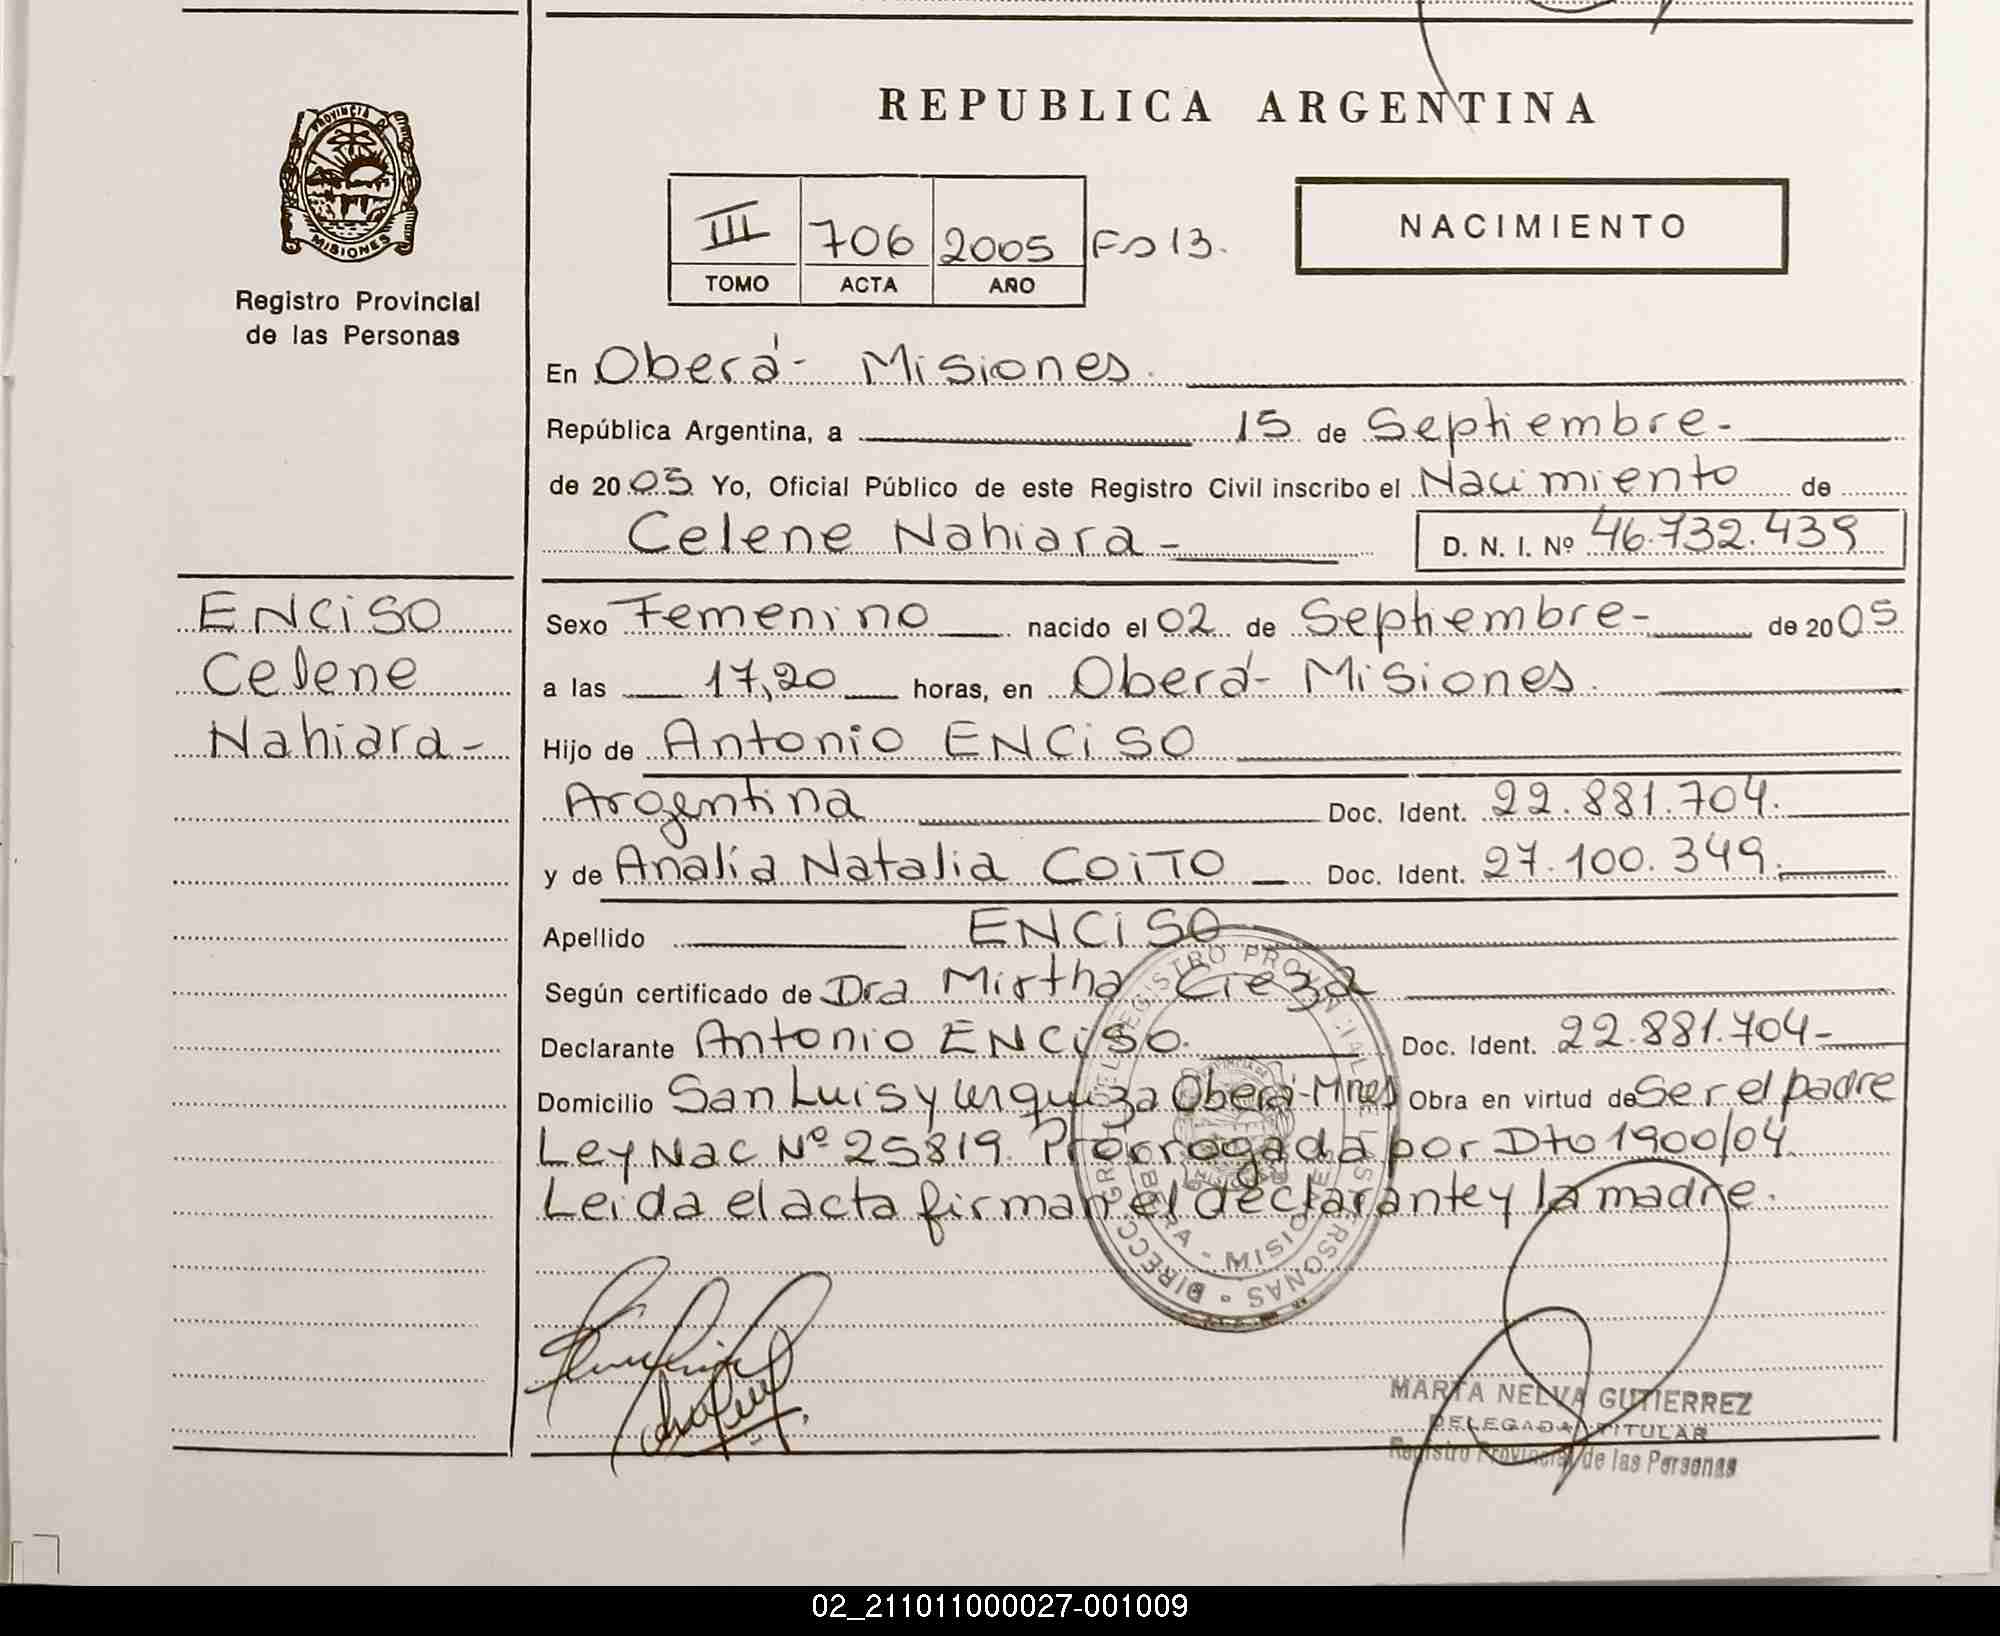 REPUBLICA ARGENTINA
PROVINCIA DE
MISIONES
Registro Provincial
de las Personas
III 706 2005 Fo 13.
TOMO ACTA AÑO
NACIMIENTO
En Oberá - Misiones.
República Argentina, a 15 de Septiembre -
de 2005 Yo, Oficial Público de este Registro Civil inscribo el Nacimiento de
Celene Nahiara - D. N. I. Nº 46.732.439
ENCISO
Celene
Nahiara -
Sexo Femenino nacido el 02 de Septiembre - de 2005
a las 17,20 horas, en Oberá - Misiones.
Hijo de Antonio ENCISO
Argentina Doc. Ident. 22.881.704.
y de Analía Natalia COITO Doc. Ident. 27.100.349.
Apellido ENCISO
Según certificado de Dra Mirtha Cieza
Declarante Antonio ENCISO. Doc. Ident. 22.881.704 -
Domicilio San Luis y Urquiza Oberá - Mnes Obra en virtud de Ser el padre
Ley Nac Nº 25819. Prorrogada por Dto 1900/04.
Leida el acta firman el declarante y la madre.
MARTA NELVA GUTIERREZ
DELEGADA TITULAR
Registro Provincial de las Personas
02_211011000027-001009